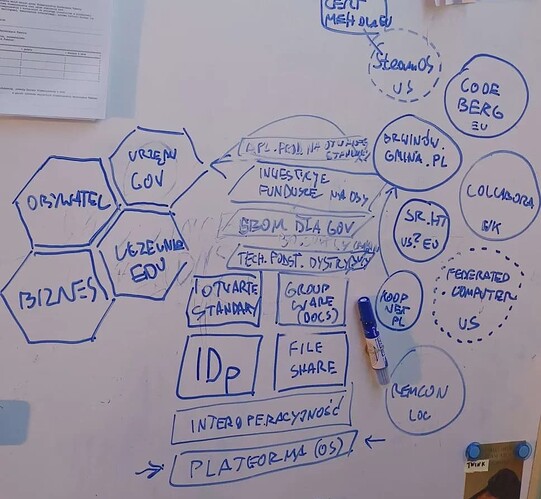 MEHDLAEU
STREAMOS
US
CODE
BERG
EU
URZĘDY
GOV
OBYWATEL
UCZELNIE
EDU
BIZNES
INWESTYCJE
FUNDUSZE NA OSY
SBOM DLA GOV
TECH. PODST. DYSTRYBUCJI
BRWINÓW.
GMINA.PL
COLLABORA
UK
SR.HT
US? EU
FEDERATED
COMPUTER
US
KOOP
NET
PL
REMCON
LOC
OTWARTE
STANDARDY
GROUP
WARE
(DOCS)
IDp
FILE
SHARE
INTEROPERACYJNOŚĆ
PLATFORMA (OS)
THINK